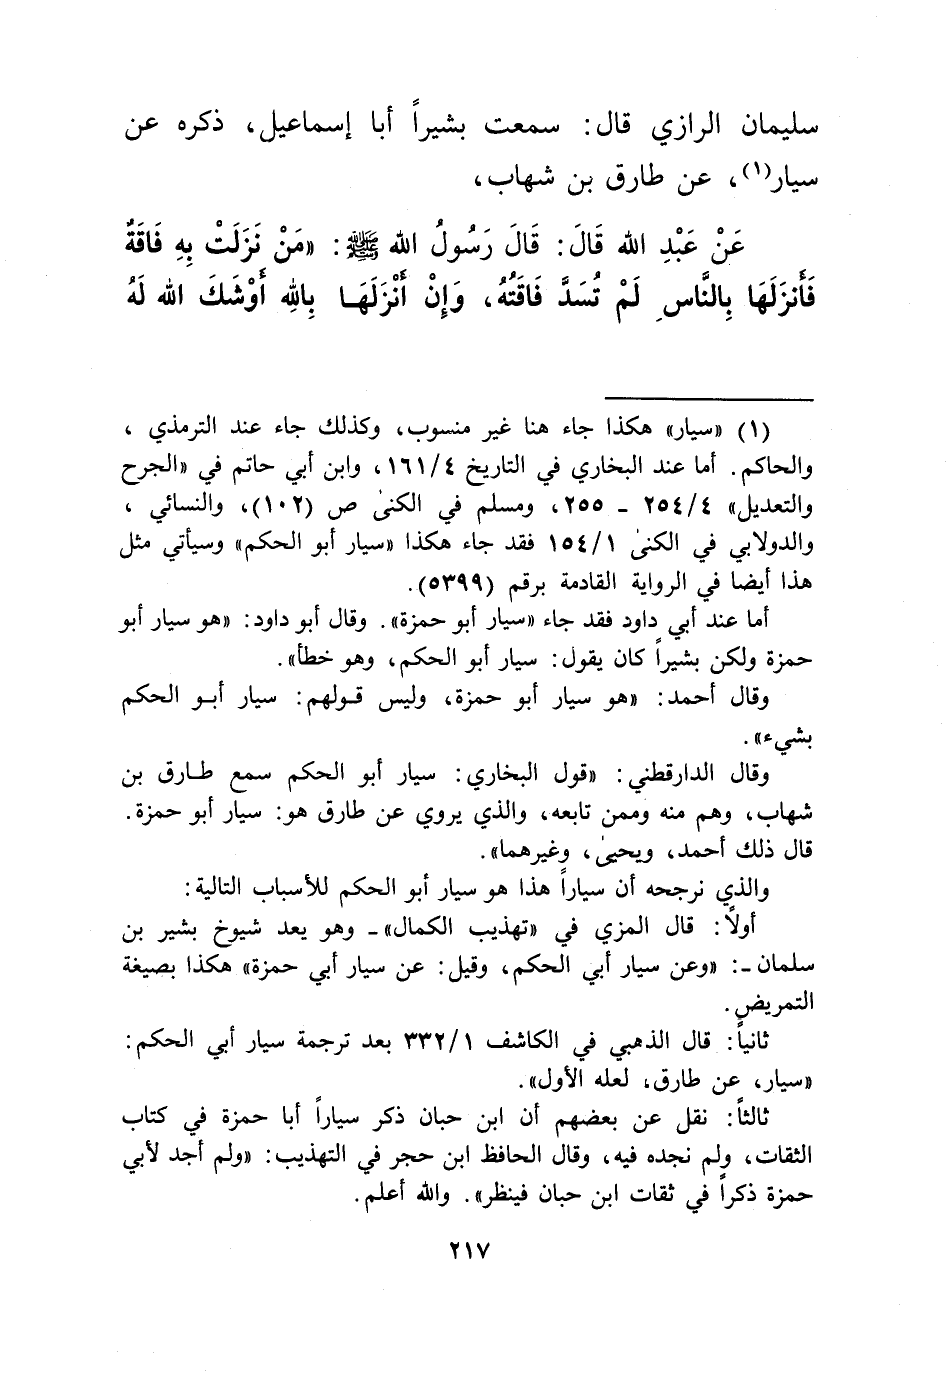 سليمان الرازي قال: سمعت بشيراً أبا إسماعيل، ذكره عن
سيار(١)، عن طارق بن شهاب،
عَنْ عَبْدِ الله قَالَ: قَالَ رَسُولُ الله ﷺ: «مَنْ نَزَلَتْ بِهِ فَاقَةٌ
فَأَنزَلَهَا بِالنَّاسِ لَمْ تُسَدَّ فَاقَتُهُ، وَإِنْ أَنْزَلَهَا بِاللهِ أَوْشَكَ الله لَهُ
(١) «سيار» هكذا جاء هنا غير منسوب، وكذلك جاء عند الترمذي،
والحاكم. أما عند البخاري في التاريخ ١٦١/٤، وابن أبي حاتم في «الجرح
والتعديل» ٢٥٤/٤ ـ ٢٥٥، ومسلم في الكنىٰ ص (١٠٢)، والنسائي،
والدولابي في الكنىٰ ١٥٤/١ فقد جاء هكذا «سيار أبو الحكم» وسيأتي مثل
هذا أيضا في الرواية القادمة برقم (٥٣٩٩).
أما عند أبي داود فقد جاء «سيار أبو حمزة». وقال أبو داود: «هو سيار أبو
حمزة ولكن بشيراً كان يقول: سيار أبو الحكم، وهو خطأ».
وقال أحمد: «هو سيار أبو حمزة، وليس قولهم: سيار أبو الحكم
بشيء».
وقال الدارقطني: «قول البخاري: سيار أبو الحكم سمع طارق بن
شهاب، وهم منه وممن تابعه، والذي يروي عن طارق هو: سيار أبو حمزة.
قال ذلك أحمد، ويحيىٰ، وغيرهما».
والذي نرجحه أن سياراً هذا هو سيار أبو الحكم للأسباب التالية:
أولاً: قال المزي في «تهذيب الكمال» ـ وهو يعد شيوخ بشير بن
سلمان ـ: «وعن سيار أبي الحكم، وقيل: عن سيار أبي حمزة» هكذا بصيغة
التمريض.
ثانياً: قال الذهبي في الكاشف ٣٣٢/١ بعد ترجمة سيار أبي الحكم:
«سيار، عن طارق، لعله الأول».
ثالثاً: نقل عن بعضهم أن ابن حبان ذكر سياراً أبا حمزة في كتاب
الثقات، ولم نجده فيه، وقال الحافظ ابن حجر في التهذيب: «ولم أجد لأبي
حمزة ذكراً في ثقات ابن حبان فينظر». والله أعلم.
٢١٧